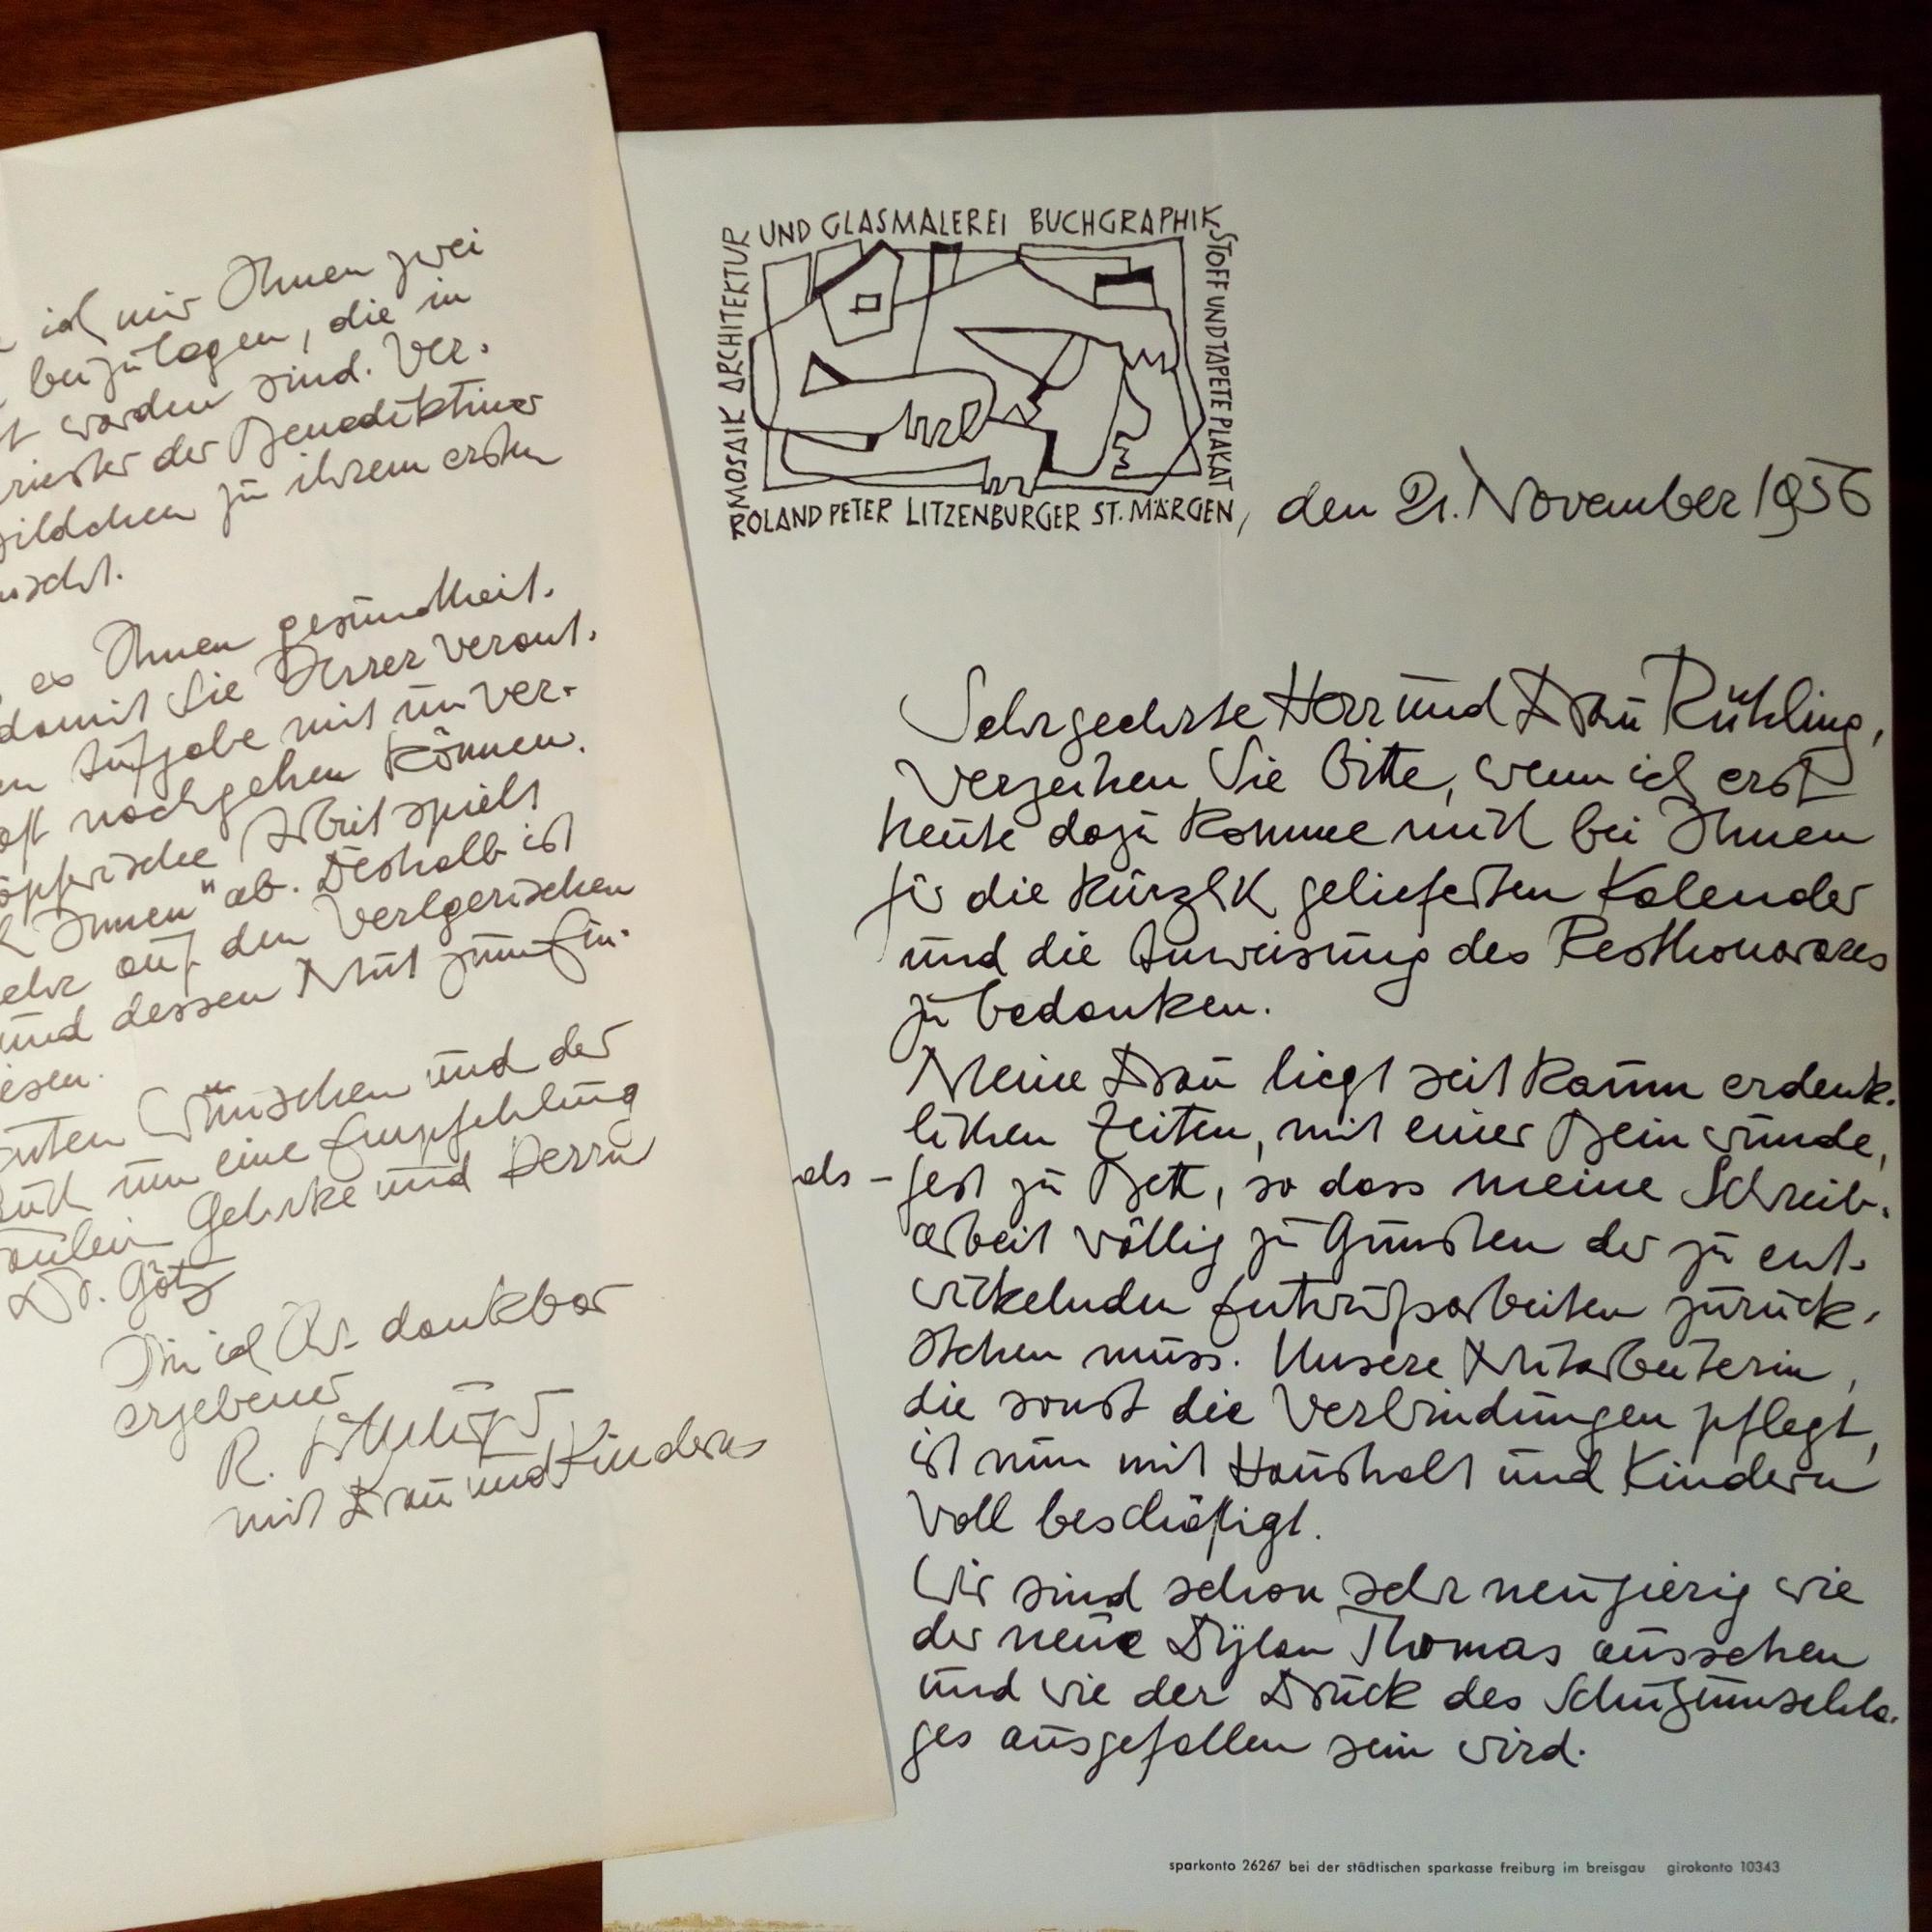 ich mir Ihnen zwei
beizulagen, die in
worden sind. Ver-
der Benediktiner
bildchen zu ihrem ersten
es Ihnen gesundheit.
damit Sie Ihrer verant.
Aufgabe mit un ver-
nachgehen können.
Arbeit spielt
Ihnen" ab. Deshalb ist
auf den Verlgerischen
und dessen Mut zum Ein-
Wünschen und der
um eine Empfehlung
Gehrke und Herrn
Dr. Götz
bin ich Ihr dankbar
ergebener
R. Litzenburger
mit Frau und Kindern
MOSAIK ARCHITEKTUR
UND GLASMALEREI BUCHGRAPHIK
STOFF UND TAPETE PLAKAT
ROLAND PETER LITZENBURGER ST. MÄRGEN, den 21. November 1956
Sehr geehrte Herr und Frau Rühling,
Verzeihen Sie bitte, wenn ich erst
heute dazu komme mich bei Ihnen
für die kürzlich gelieferten Kalender
und die Anweisung des Resthonorares
zu bedanken.
Meine Frau liegt seit kaum erdenk-
lichen Zeiten, mit einer Beinwunde,
als - fest zu Bett, so dass meine Schreib-
arbeit völlig zu Gunsten der zu ent-
wickelnden Entwurfsarbeiten zurück-
stehen muss. Unsere Mitarbeiterin,
die sonst die Verbindungen pflegt,
ist nun mit Haushalt und Kindern
voll beschäftigt.
Wir sind schon sehr neugierig wie
der neue Dylan Thomas aussehen
und wie der Druck des Schutzumschla-
ges ausgefallen sein wird.
sparkonto 26267 bei der städtischen sparkasse freiburg im breisgau girokonto 10343